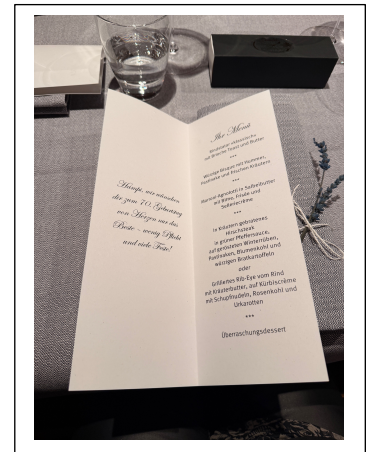 Hampi, wir wünschen
dir zum 70. Geburtstag
von Herzen nur das
Beste - wenig Pflicht
und viele Feste!
Ihr Menü
Rindstatar «klassisch»
mit Brioche Toast und Butter
***
Würzige Bisque mit Hummer,
und frischen Kräutern
***
Marroni-Agnolotti in Salbeibutter
mit Birne, Frisée und
Selleriecrème
***
in Kräutern gebratenes
Hirschsteak
in grüner Pfeffersauce,
auf gerösteten Winterrüben,
Pastinaken, Blumenkohl und
würzigen Bratkartoffeln
oder
Grilliertes Rib-Eye vom Rind
mit Kräuterbutter, auf Kürbiscrème
mit Schupfnudeln, Rosenkohl und
Urkarotten
***
Überraschungsdessert